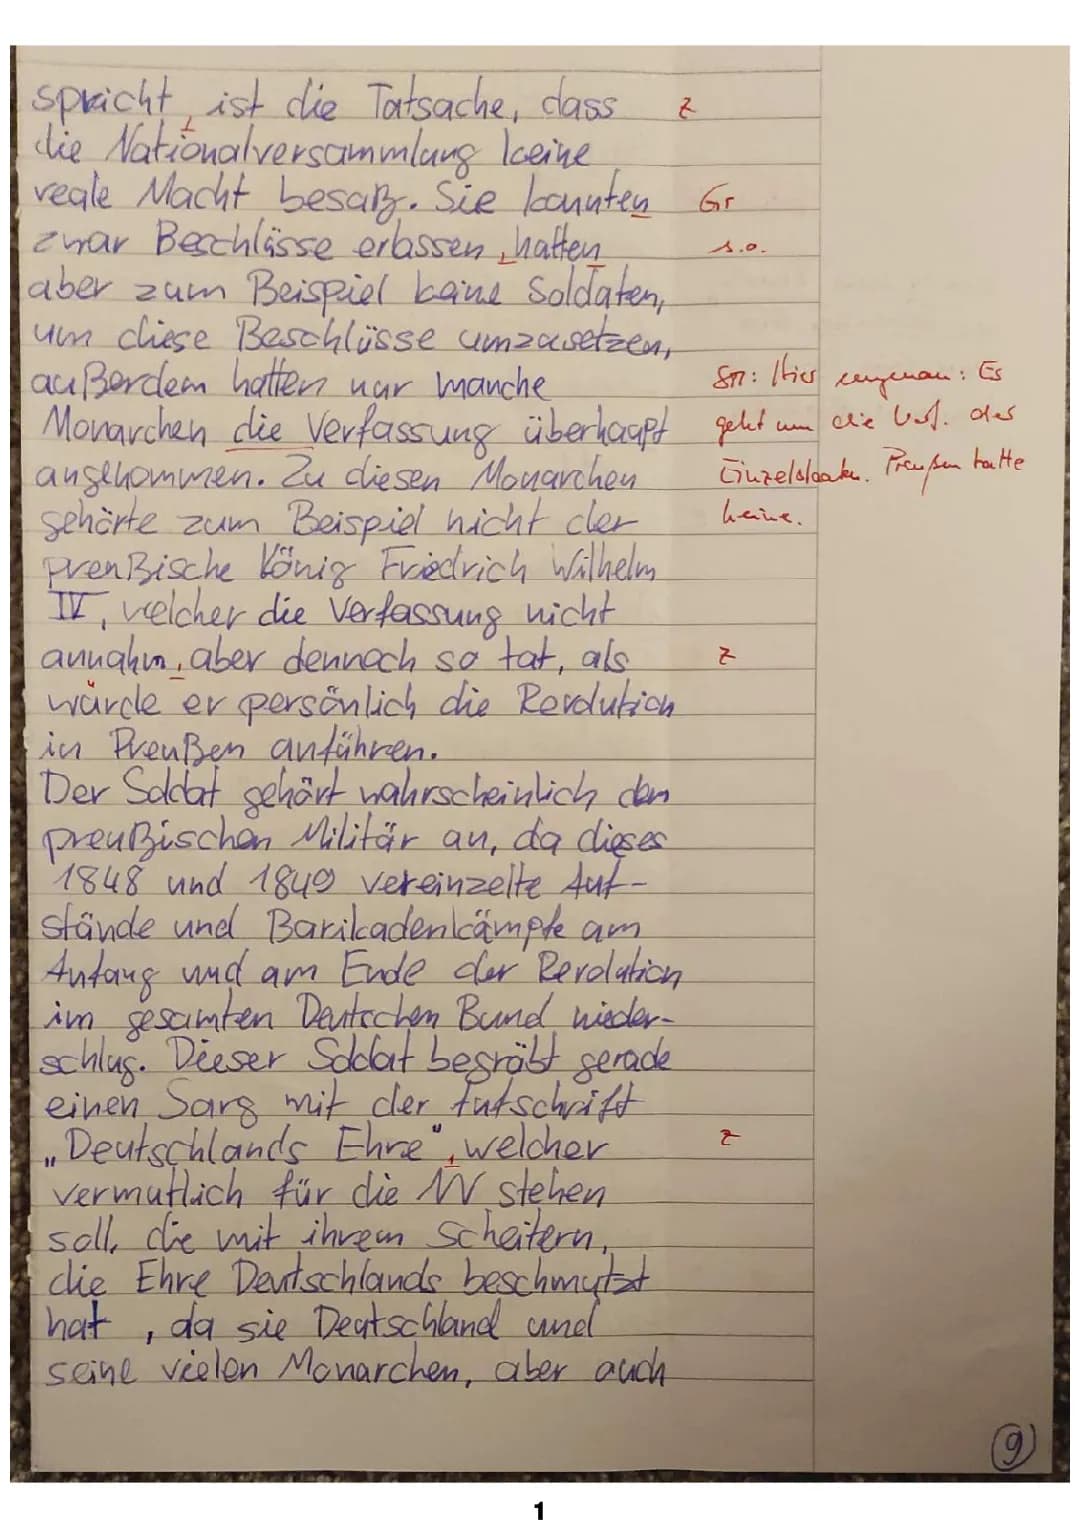 spricht, ist die Tatsache, dass Z
die Nationalversammlung keine
reale Macht besaß. Sie konnten Gr
zwar Beschlüsse erlassen, hatten s.o.
aber zum Beispiel keine Soldaten,
um diese Beschlüsse umzusetzen,
außerdem hatten nur manche Hier ungenau: Es
Monarchen die Verfassung überhaupt geht um die Verf. der
angenommen. Zu diesen Monarchen Einzelstaaten. Preußen hatte
gehörte zum Beispiel nicht der keine.
preußische König Friedrich Wilhelm
IV, welcher die Verfassung nicht
annahm, aber dennoch so tat, als Z
würde er persönlich die Revolution
in Preußen anführen.
Der Soldat gehört wahrscheinlich dem
preußischen Militär an, da dieses
1848 und 1849 vereinzelte Auf-
stände und Barikadenkämpfe am
Anfang und am Ende der Revolution
im gesamten Deutschen Bund nieder-
schlug. Dieser Soldat begräbt gerade
einen Sarg mit der Aufschrift
„Deutschlands Ehre", welcher Z
vermutlich für die NV stehen
soll, die mit ihrem Scheitern,
die Ehre Deutschlands beschmutzt
hat, da sie Deutschland und
seine vielen Monarchen, aber auch
9
1